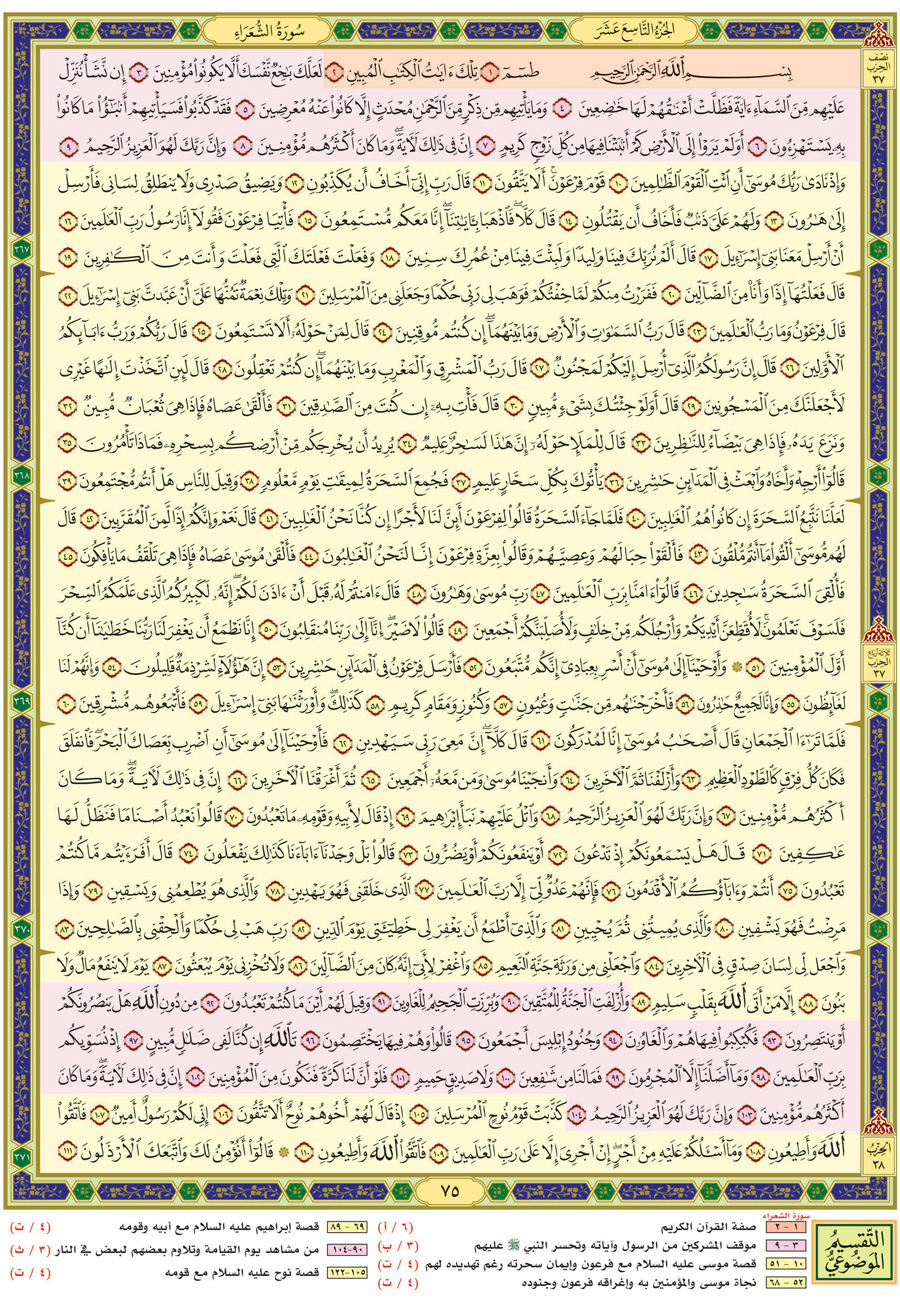 الجزء التاسع عشر
سورة الشعراء
بِسْمِ اللَّهِ الرَّحْمَٰنِ الرَّحِيمِ طسٓمٓ ١ تِلْكَ ءَايَٰتُ الْكِتَٰبِ الْمُبِينِ ٢ لَعَلَّكَ بَٰخِعٌ نَّفْسَكَ أَلَّا يَكُونُوا۟ مُؤْمِنِينَ ٣ إِن نَّشَأْ نُنَزِّلْ
عَلَيْهِم مِّنَ السَّمَآءِ ءَايَةً فَظَلَّتْ أَعْنَٰقُهُمْ لَهَا خَٰضِعِينَ ٤ وَمَا يَأْتِيهِم مِّن ذِكْرٍ مِّنَ الرَّحْمَٰنِ مُحْدَثٍ إِلَّا كَانُوا۟ عَنْهُ مُعْرِضِينَ ٥ فَقَدْ كَذَّبُوا۟ فَسَيَأْتِيهِمْ أَنۢبَٰٓؤُا۟ مَا كَانُوا۟
بِهِۦ يَسْتَهْزِءُونَ ٦ أَوَلَمْ يَرَوْا۟ إِلَى الْأَرْضِ كَمْ أَنۢبَتْنَا فِيهَا مِن كُلِّ زَوْجٍ كَرِيمٍ ٧ إِنَّ فِى ذَٰلِكَ لَءَايَةً وَمَا كَانَ أَكْثَرُهُم مُّؤْمِنِينَ ٨ وَإِنَّ رَبَّكَ لَهُوَ الْعَزِيزُ الرَّحِيمُ ٩
وَإِذْ نَادَىٰ رَبُّكَ مُوسَىٰٓ أَنِ ائْتِ الْقَوْمَ الظَّٰلِمِينَ ١٠ قَوْمَ فِرْعَوْنَ أَلَا يَتَّقُونَ ١١ قَالَ رَبِّ إِنِّىٓ أَخَافُ أَن يُكَذِّبُونِ ١٢ وَيَضِيقُ صَدْرِى وَلَا يَنطَلِقُ لِسَانِى فَأَرْسِلْ
إِلَىٰ هَٰرُونَ ١٣ وَلَهُمْ عَلَىَّ ذَنۢبٌ فَأَخَافُ أَن يَقْتُلُونِ ١٤ قَالَ كَلَّا فَاذْهَبَا بِـَٔايَٰتِنَآ إِنَّا مَعَكُم مُّسْتَمِعُونَ ١٥ فَأْتِيَا فِرْعَوْنَ فَقُولَآ إِنَّا رَسُولُ رَبِّ الْعَٰلَمِينَ ١٦
أَنْ أَرْسِلْ مَعَنَا بَنِىٓ إِسْرَٰٓءِيلَ ١٧ قَالَ أَلَمْ نُرَبِّكَ فِينَا وَلِيدًا وَلَبِثْتَ فِينَا مِنْ عُمُرِكَ سِنِينَ ١٨ وَفَعَلْتَ فَعْلَتَكَ الَّتِى فَعَلْتَ وَأَنتَ مِنَ الْكَٰفِرِينَ ١٩
قَالَ فَعَلْتُهَآ إِذًا وَأَنَا۠ مِنَ الضَّآلِّينَ ٢٠ فَفَرَرْتُ مِنكُمْ لَمَّا خِفْتُكُمْ فَوَهَبَ لِى رَبِّى حُكْمًا وَجَعَلَنِى مِنَ الْمُرْسَلِينَ ٢١ وَتِلْكَ نِعْمَةٌ تَمُنُّهَا عَلَىَّ أَنْ عَبَّدتَّ بَنِىٓ إِسْرَٰٓءِيلَ ٢٢
قَالَ فِرْعَوْنُ وَمَا رَبُّ الْعَٰلَمِينَ ٢٣ قَالَ رَبُّ السَّمَٰوَٰتِ وَالْأَرْضِ وَمَا بَيْنَهُمَآ إِن كُنتُم مُّوقِنِينَ ٢٤ قَالَ لِمَنْ حَوْلَهُۥٓ أَلَا تَسْتَمِعُونَ ٢٥ قَالَ رَبُّكُمْ وَرَبُّ ءَابَآئِكُمُ
الْأَوَّلِينَ ٢٦ قَالَ إِنَّ رَسُولَكُمُ الَّذِىٓ أُرْسِلَ إِلَيْكُمْ لَمَجْنُونٌ ٢٧ قَالَ رَبُّ الْمَشْرِقِ وَالْمَغْرِبِ وَمَا بَيْنَهُمَآ إِن كُنتُمْ تَعْقِلُونَ ٢٨ قَالَ لَئِنِ اتَّخَذْتَ إِلَٰهًا غَيْرِى
لَأَجْعَلَنَّكَ مِنَ الْمَسْجُونِينَ ٢٩ قَالَ أَوَلَوْ جِئْتُكَ بِشَىْءٍ مُّبِينٍ ٣٠ قَالَ فَأْتِ بِهِۦٓ إِن كُنتَ مِنَ الصَّٰدِقِينَ ٣١ فَأَلْقَىٰ عَصَاهُ فَإِذَا هِىَ ثُعْبَانٌ مُّبِينٌ ٣٢
وَنَزَعَ يَدَهُۥ فَإِذَا هِىَ بَيْضَآءُ لِلنَّٰظِرِينَ ٣٣ قَالَ لِلْمَلَإِ حَوْلَهُۥٓ إِنَّ هَٰذَا لَسَٰحِرٌ عَلِيمٌ ٣٤ يُرِيدُ أَن يُخْرِجَكُم مِّنْ أَرْضِكُم بِسِحْرِهِۦ فَمَاذَا تَأْمُرُونَ ٣٥
قَالُوٓا۟ أَرْجِهْ وَأَخَاهُ وَابْعَثْ فِى الْمَدَآئِنِ حَٰشِرِينَ ٣٦ يَأْتُوكَ بِكُلِّ سَحَّارٍ عَلِيمٍ ٣٧ فَجُمِعَ السَّحَرَةُ لِمِيقَٰتِ يَوْمٍ مَّعْلُومٍ ٣٨ وَقِيلَ لِلنَّاسِ هَلْ أَنتُم مُّجْتَمِعُونَ ٣٩
لَعَلَّنَا نَتَّبِعُ السَّحَرَةَ إِن كَانُوا۟ هُمُ الْغَٰلِبِينَ ٤٠ فَلَمَّا جَآءَ السَّحَرَةُ قَالُوا۟ لِفِرْعَوْنَ أَئِنَّ لَنَا لَأَجْرًا إِن كُنَّا نَحْنُ الْغَٰلِبِينَ ٤١ قَالَ نَعَمْ وَإِنَّكُمْ إِذًا لَّمِنَ الْمُقَرَّبِينَ ٤٢ قَالَ
لَهُم مُّوسَىٰٓ أَلْقُوا۟ مَآ أَنتُم مُّلْقُونَ ٤٣ فَأَلْقَوْا۟ حِبَالَهُمْ وَعِصِيَّهُمْ وَقَالُوا۟ بِعِزَّةِ فِرْعَوْنَ إِنَّا لَنَحْنُ الْغَٰلِبُونَ ٤٤ فَأَلْقَىٰ مُوسَىٰ عَصَاهُ فَإِذَا هِىَ تَلْقَفُ مَا يَأْفِكُونَ ٤٥
فَأُلْقِىَ السَّحَرَةُ سَٰجِدِينَ ٤٦ قَالُوٓا۟ ءَامَنَّا بِرَبِّ الْعَٰلَمِينَ ٤٧ رَبِّ مُوسَىٰ وَهَٰرُونَ ٤٨ قَالَ ءَامَنتُمْ لَهُۥ قَبْلَ أَنْ ءَاذَنَ لَكُمْ إِنَّهُۥ لَكَبِيرُكُمُ الَّذِى عَلَّمَكُمُ السِّحْرَ
فَلَسَوْفَ تَعْلَمُونَ لَأُقَطِّعَنَّ أَيْدِيَكُمْ وَأَرْجُلَكُم مِّنْ خِلَٰفٍ وَلَأُصَلِّبَنَّكُمْ أَجْمَعِينَ ٤٩ قَالُوا۟ لَا ضَيْرَ إِنَّآ إِلَىٰ رَبِّنَا مُنقَلِبُونَ ٥٠ إِنَّا نَطْمَعُ أَن يَغْفِرَ لَنَا رَبُّنَا خَطَٰيَٰنَآ أَن كُنَّآ
أَوَّلَ الْمُؤْمِنِينَ ٥١ ۞ وَأَوْحَيْنَآ إِلَىٰ مُوسَىٰٓ أَنْ أَسْرِ بِعِبَادِىٓ إِنَّكُم مُّتَّبَعُونَ ٥٢ فَأَرْسَلَ فِرْعَوْنُ فِى الْمَدَآئِنِ حَٰشِرِينَ ٥٣ إِنَّ هَٰٓؤُلَآءِ لَشِرْذِمَةٌ قَلِيلُونَ ٥٤ وَإِنَّهُمْ لَنَا
لَغَآئِظُونَ ٥٥ وَإِنَّا لَجَمِيعٌ حَٰذِرُونَ ٥٦ فَأَخْرَجْنَٰهُم مِّن جَنَّٰتٍ وَعُيُونٍ ٥٧ وَكُنُوزٍ وَمَقَامٍ كَرِيمٍ ٥٨ كَذَٰلِكَ وَأَوْرَثْنَٰهَا بَنِىٓ إِسْرَٰٓءِيلَ ٥٩ فَأَتْبَعُوهُم مُّشْرِقِينَ ٦٠
فَلَمَّا تَرَٰٓءَا الْجَمْعَانِ قَالَ أَصْحَٰبُ مُوسَىٰٓ إِنَّا لَمُدْرَكُونَ ٦١ قَالَ كَلَّآ إِنَّ مَعِىَ رَبِّى سَيَهْدِينِ ٦٢ فَأَوْحَيْنَآ إِلَىٰ مُوسَىٰٓ أَنِ اضْرِب بِّعَصَاكَ الْبَحْرَ فَانفَلَقَ
فَكَانَ كُلُّ فِرْقٍ كَالطَّوْدِ الْعَظِيمِ ٦٣ وَأَزْلَفْنَا ثَمَّ الْءَاخَرِينَ ٦٤ وَأَنجَيْنَا مُوسَىٰ وَمَن مَّعَهُۥٓ أَجْمَعِينَ ٦٥ ثُمَّ أَغْرَقْنَا الْءَاخَرِينَ ٦٦ إِنَّ فِى ذَٰلِكَ لَءَايَةً وَمَا كَانَ
أَكْثَرُهُم مُّؤْمِنِينَ ٦٧ وَإِنَّ رَبَّكَ لَهُوَ الْعَزِيزُ الرَّحِيمُ ٦٨ وَاتْلُ عَلَيْهِمْ نَبَأَ إِبْرَٰهِيمَ ٦٩ إِذْ قَالَ لِأَبِيهِ وَقَوْمِهِۦ مَا تَعْبُدُونَ ٧٠ قَالُوا۟ نَعْبُدُ أَصْنَامًا فَنَظَلُّ لَهَا
عَٰكِفِينَ ٧١ قَالَ هَلْ يَسْمَعُونَكُمْ إِذْ تَدْعُونَ ٧٢ أَوْ يَنفَعُونَكُمْ أَوْ يَضُرُّونَ ٧٣ قَالُوا۟ بَلْ وَجَدْنَآ ءَابَآءَنَا كَذَٰلِكَ يَفْعَلُونَ ٧٤ قَالَ أَفَرَءَيْتُم مَّا كُنتُمْ
تَعْبُدُونَ ٧٥ أَنتُمْ وَءَابَآؤُكُمُ الْأَقْدَمُونَ ٧٦ فَإِنَّهُمْ عَدُوٌّ لِّىٓ إِلَّا رَبَّ الْعَٰلَمِينَ ٧٧ الَّذِى خَلَقَنِى فَهُوَ يَهْدِينِ ٧٨ وَالَّذِى هُوَ يُطْعِمُنِى وَيَسْقِينِ ٧٩ وَإِذَا
مَرِضْتُ فَهُوَ يَشْفِينِ ٨٠ وَالَّذِى يُمِيتُنِى ثُمَّ يُحْيِينِ ٨١ وَالَّذِىٓ أَطْمَعُ أَن يَغْفِرَ لِى خَطِيٓـَٔتِى يَوْمَ الدِّينِ ٨٢ رَبِّ هَبْ لِى حُكْمًا وَأَلْحِقْنِى بِالصَّٰلِحِينَ ٨٣
وَاجْعَل لِّى لِسَانَ صِدْقٍ فِى الْءَاخِرِينَ ٨٤ وَاجْعَلْنِى مِن وَرَثَةِ جَنَّةِ النَّعِيمِ ٨٥ وَاغْفِرْ لِأَبِىٓ إِنَّهُۥ كَانَ مِنَ الضَّآلِّينَ ٨٦ وَلَا تُخْزِنِى يَوْمَ يُبْعَثُونَ ٨٧ يَوْمَ لَا يَنفَعُ مَالٌ وَلَا
بَنُونَ ٨٨ إِلَّا مَنْ أَتَى اللَّهَ بِقَلْبٍ سَلِيمٍ ٨٩ وَأُزْلِفَتِ الْجَنَّةُ لِلْمُتَّقِينَ ٩٠ وَبُرِّزَتِ الْجَحِيمُ لِلْغَاوِينَ ٩١ وَقِيلَ لَهُمْ أَيْنَ مَا كُنتُمْ تَعْبُدُونَ ٩٢ مِن دُونِ اللَّهِ هَلْ يَنصُرُونَكُمْ
أَوْ يَنتَصِرُونَ ٩٣ فَكُبْكِبُوا۟ فِيهَا هُمْ وَالْغَاوُۥنَ ٩٤ وَجُنُودُ إِبْلِيسَ أَجْمَعُونَ ٩٥ قَالُوا۟ وَهُمْ فِيهَا يَخْتَصِمُونَ ٩٦ تَاللَّهِ إِن كُنَّا لَفِى ضَلَٰلٍ مُّبِينٍ ٩٧ إِذْ نُسَوِّيكُم
بِرَبِّ الْعَٰلَمِينَ ٩٨ وَمَآ أَضَلَّنَآ إِلَّا الْمُجْرِمُونَ ٩٩ فَمَا لَنَا مِن شَٰفِعِينَ ١٠٠ وَلَا صَدِيقٍ حَمِيمٍ ١٠١ فَلَوْ أَنَّ لَنَا كَرَّةً فَنَكُونَ مِنَ الْمُؤْمِنِينَ ١٠٢ إِنَّ فِى ذَٰلِكَ لَءَايَةً وَمَا كَانَ
أَكْثَرُهُم مُّؤْمِنِينَ ١٠٣ وَإِنَّ رَبَّكَ لَهُوَ الْعَزِيزُ الرَّحِيمُ ١٠٤ كَذَّبَتْ قَوْمُ نُوحٍ الْمُرْسَلِينَ ١٠٥ إِذْ قَالَ لَهُمْ أَخُوهُمْ نُوحٌ أَلَا تَتَّقُونَ ١٠٦ إِنِّى لَكُمْ رَسُولٌ أَمِينٌ ١٠٧ فَاتَّقُوا۟
اللَّهَ وَأَطِيعُونِ ١٠٨ وَمَآ أَسْـَٔلُكُمْ عَلَيْهِ مِنْ أَجْرٍ إِنْ أَجْرِىَ إِلَّا عَلَىٰ رَبِّ الْعَٰلَمِينَ ١٠٩ فَاتَّقُوا۟ اللَّهَ وَأَطِيعُونِ ١١٠ ۞ قَالُوٓا۟ أَنُؤْمِنُ لَكَ وَاتَّبَعَكَ الْأَرْذَلُونَ ١١١
نصف الحزب ٣٧
ثلاثة أرباع الحزب ٣٧
الحزب ٣٨
٣٦٧
٣٦٨
٣٦٩
٣٧٠
٣٧١
٧٥
التقسيم الموضوعي
سورة الشعراء
١ - ٢ صفة القرآن الكريم (٦ / أ)
٣ - ٩ موقف المشركين من الرسول وآياته وتحسر النبي ﷺ عليهم (٣ / ب)
١٠ - ٥١ قصة موسى عليه السلام مع فرعون وإيمان سحرته رغم تهديده لهم (٤ / ت)
٥٢ - ٦٨ نجاة موسى والمؤمنين به وإغراقه فرعون وجنوده (٤ / ت)
٦٩ - ٨٩ قصة إبراهيم عليه السلام مع أبيه وقومه (٤ / ت)
٩٠-١٠٤ من مشاهد يوم القيامة وتلاوم بعضهم لبعض في النار (٣ / ث)
١٠٥-١٢٢ قصة نوح عليه السلام مع قومه (٤ / ت)